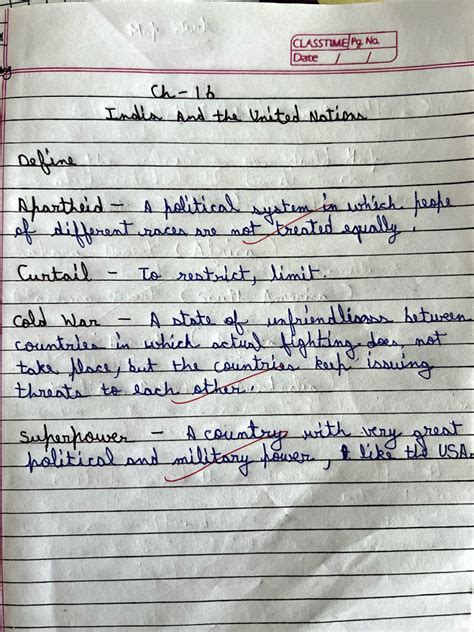 CLASSTIME Pg. No.
Date / /
Ch - 16
India And the United Nations
Define
Apartheid - A political system in which peope
of different races are not treated equally.
Curtail - To restrict, limit.
Cold War - A state of between
countries in which actual fighting does not
take place, but the countries keep issuing
threats to each other.
Superpower - A country with very great
political and military power, like the USA.